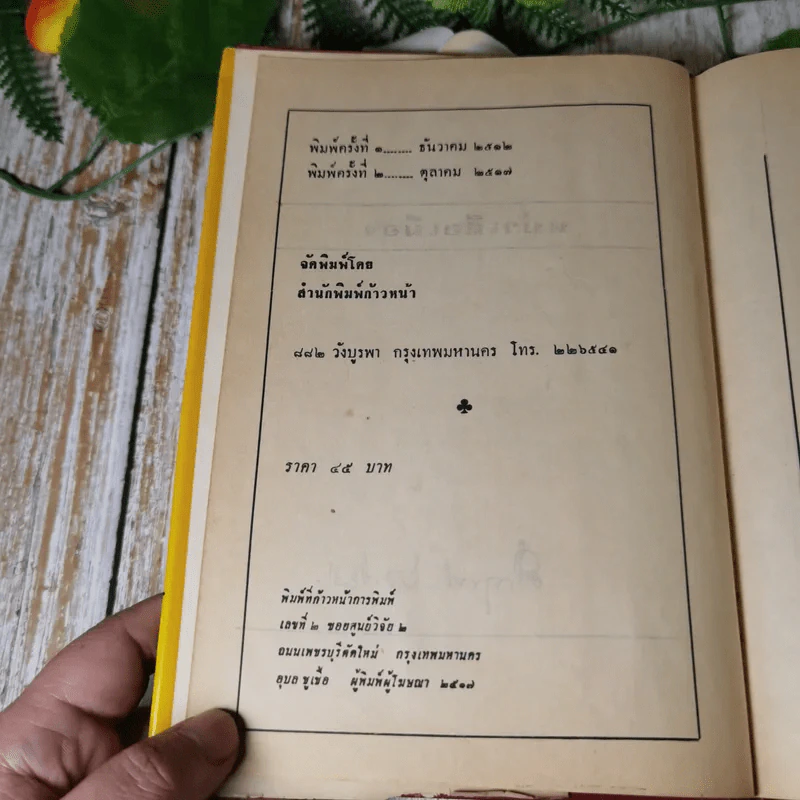 พิมพ์ครั้งที่ ๑........ ธันวาคม ๒๕๑๒
พิมพ์ครั้งที่ ๒........ ตุลาคม ๒๕๑๗
จัดพิมพ์โดย
สำนักพิมพ์ก้าวหน้า
๘๘๒ วังบูรพา กรุงเทพมหานคร โทร. ๒๒๖๕๔๑
ราคา ๔๕ บาท
พิมพ์ที่ก้าวหน้าการพิมพ์
เลขที่ ๒ ซอยศูนย์วิจัย ๒
ถนนเพชรบุรีตัดใหม่ กรุงเทพมหานคร
อุบล ชูเชื้อ ผู้พิมพ์ผู้โฆษณา ๒๕๑๗